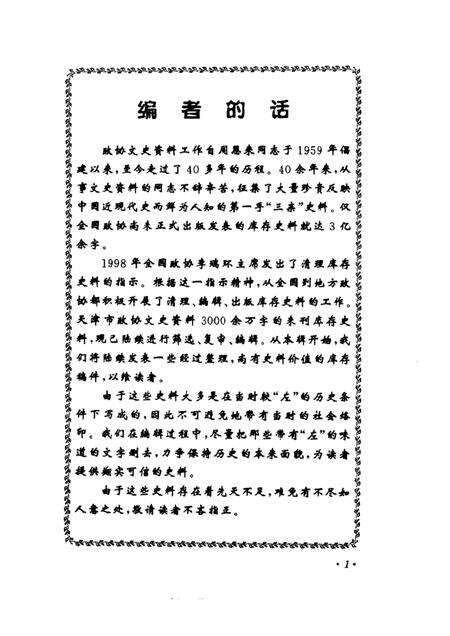 编者的话
政协文史资料工作自周恩来同志于1959年倡
建以来，至今走过了40多年的历程。40余年来，从
事文史资料的同志不辞辛苦，征集了大量珍贵反映
中国近现代史而鲜为人知的第一手“三亲”史料。仅
全国政协尚未正式出版发表的库存史料就达3亿
余字。
1998年全国政协李瑞环主席发出了清理库存
史料的指示。根据这一指示精神，从全国到地方政
协都积极开展了清理、编辑、出版库存史料的工作。
天津市政协文史资料3000余万字的未刊库存史
料，现已陆续进行筛选、复审、编辑。从本辑开始，我
们将陆续发表一些经过整理，尚有史料价值的库存
稿件，以飨读者。
由于这些史料大多是在当时较“左”的历史条
件下写成的，因此不可避免地带有当时的社会烙
印。我们在编辑过程中，尽量把那些带有“左”的味
道的文字删去，力争保持历史的本来面貌，为读者
提供翔实可信的史料。
由于这些史料存在着先天不足，难免有不尽如
人意之处，敬请读者不吝指正。
·1·